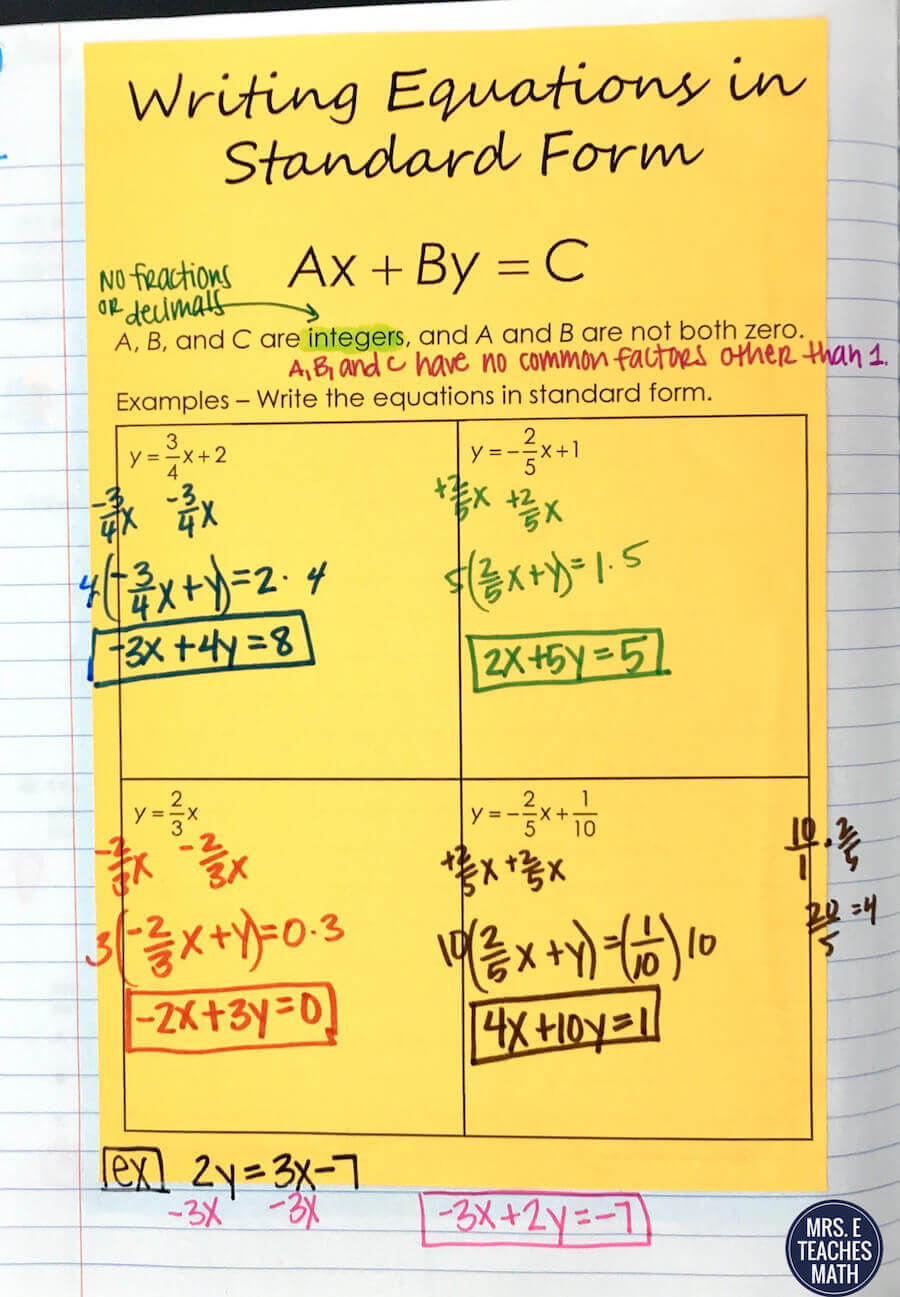 Writing Equations in
Standard Form
Ax + By = C
NO fractions
OR decimals
A, B, and C are integers, and A and B are not both zero.
A, B, and C have no common factors other than 1.
Examples – Write the equations in standard form.
y = 3/4 x + 2
-3/4 x -3/4 x
4(-3/4 x + y) = 2 · 4
-3x + 4y = 8
y = -2/5 x + 1
+2/5 x +2/5 x
5(2/5 x + y) = 1 · 5
2x + 5y = 5
y = 2/3 x
-2/3 x -2/3 x
3(-2/3 x + y) = 0 · 3
-2x + 3y = 0
y = -2/5 x + 1/10
+2/5 x +2/5 x
10(2/5 x + y) = (1/10)10
4x + 10y = 1
10/1 · 2/5
20/5 = 4
ex 2y = 3x - 7
-3x -3x
-3x + 2y = -7
MRS. E
TEACHES
MATH